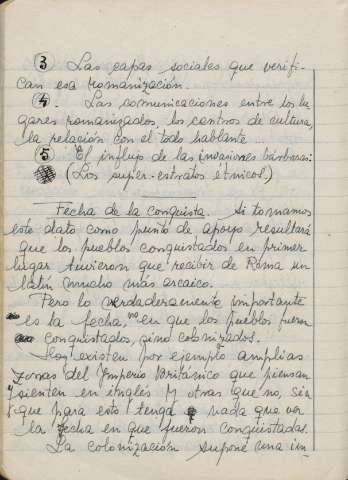 3 Las capas sociales que verifi-
can esa romanización.
4. Las comunicaciones entre los lu-
gares romanizados, los centros de cultura,
la relación con el todo hablante
5 El influjo de las invasiones bárbaras:
(Los super-estratos étnicos)
Fecha de la conquista. Si tomamos
este dato como punto de apoyo resultará
que los pueblos conquistados en primer
lugar tuvieron que recibir de Roma un
latín mucho más arcaico.
Pero lo verdaderamente importante
es la fecha, no en que los pueblos fueron
conquistados, sino colonizados.
Hoy existen por ejemplo amplias
zonas del Imperio Británico que piensan
y sienten en inglés y otras que no, sin
que para esto tenga nada que ver
la fecha en que fueron conquistadas.
La colonización supone una im-